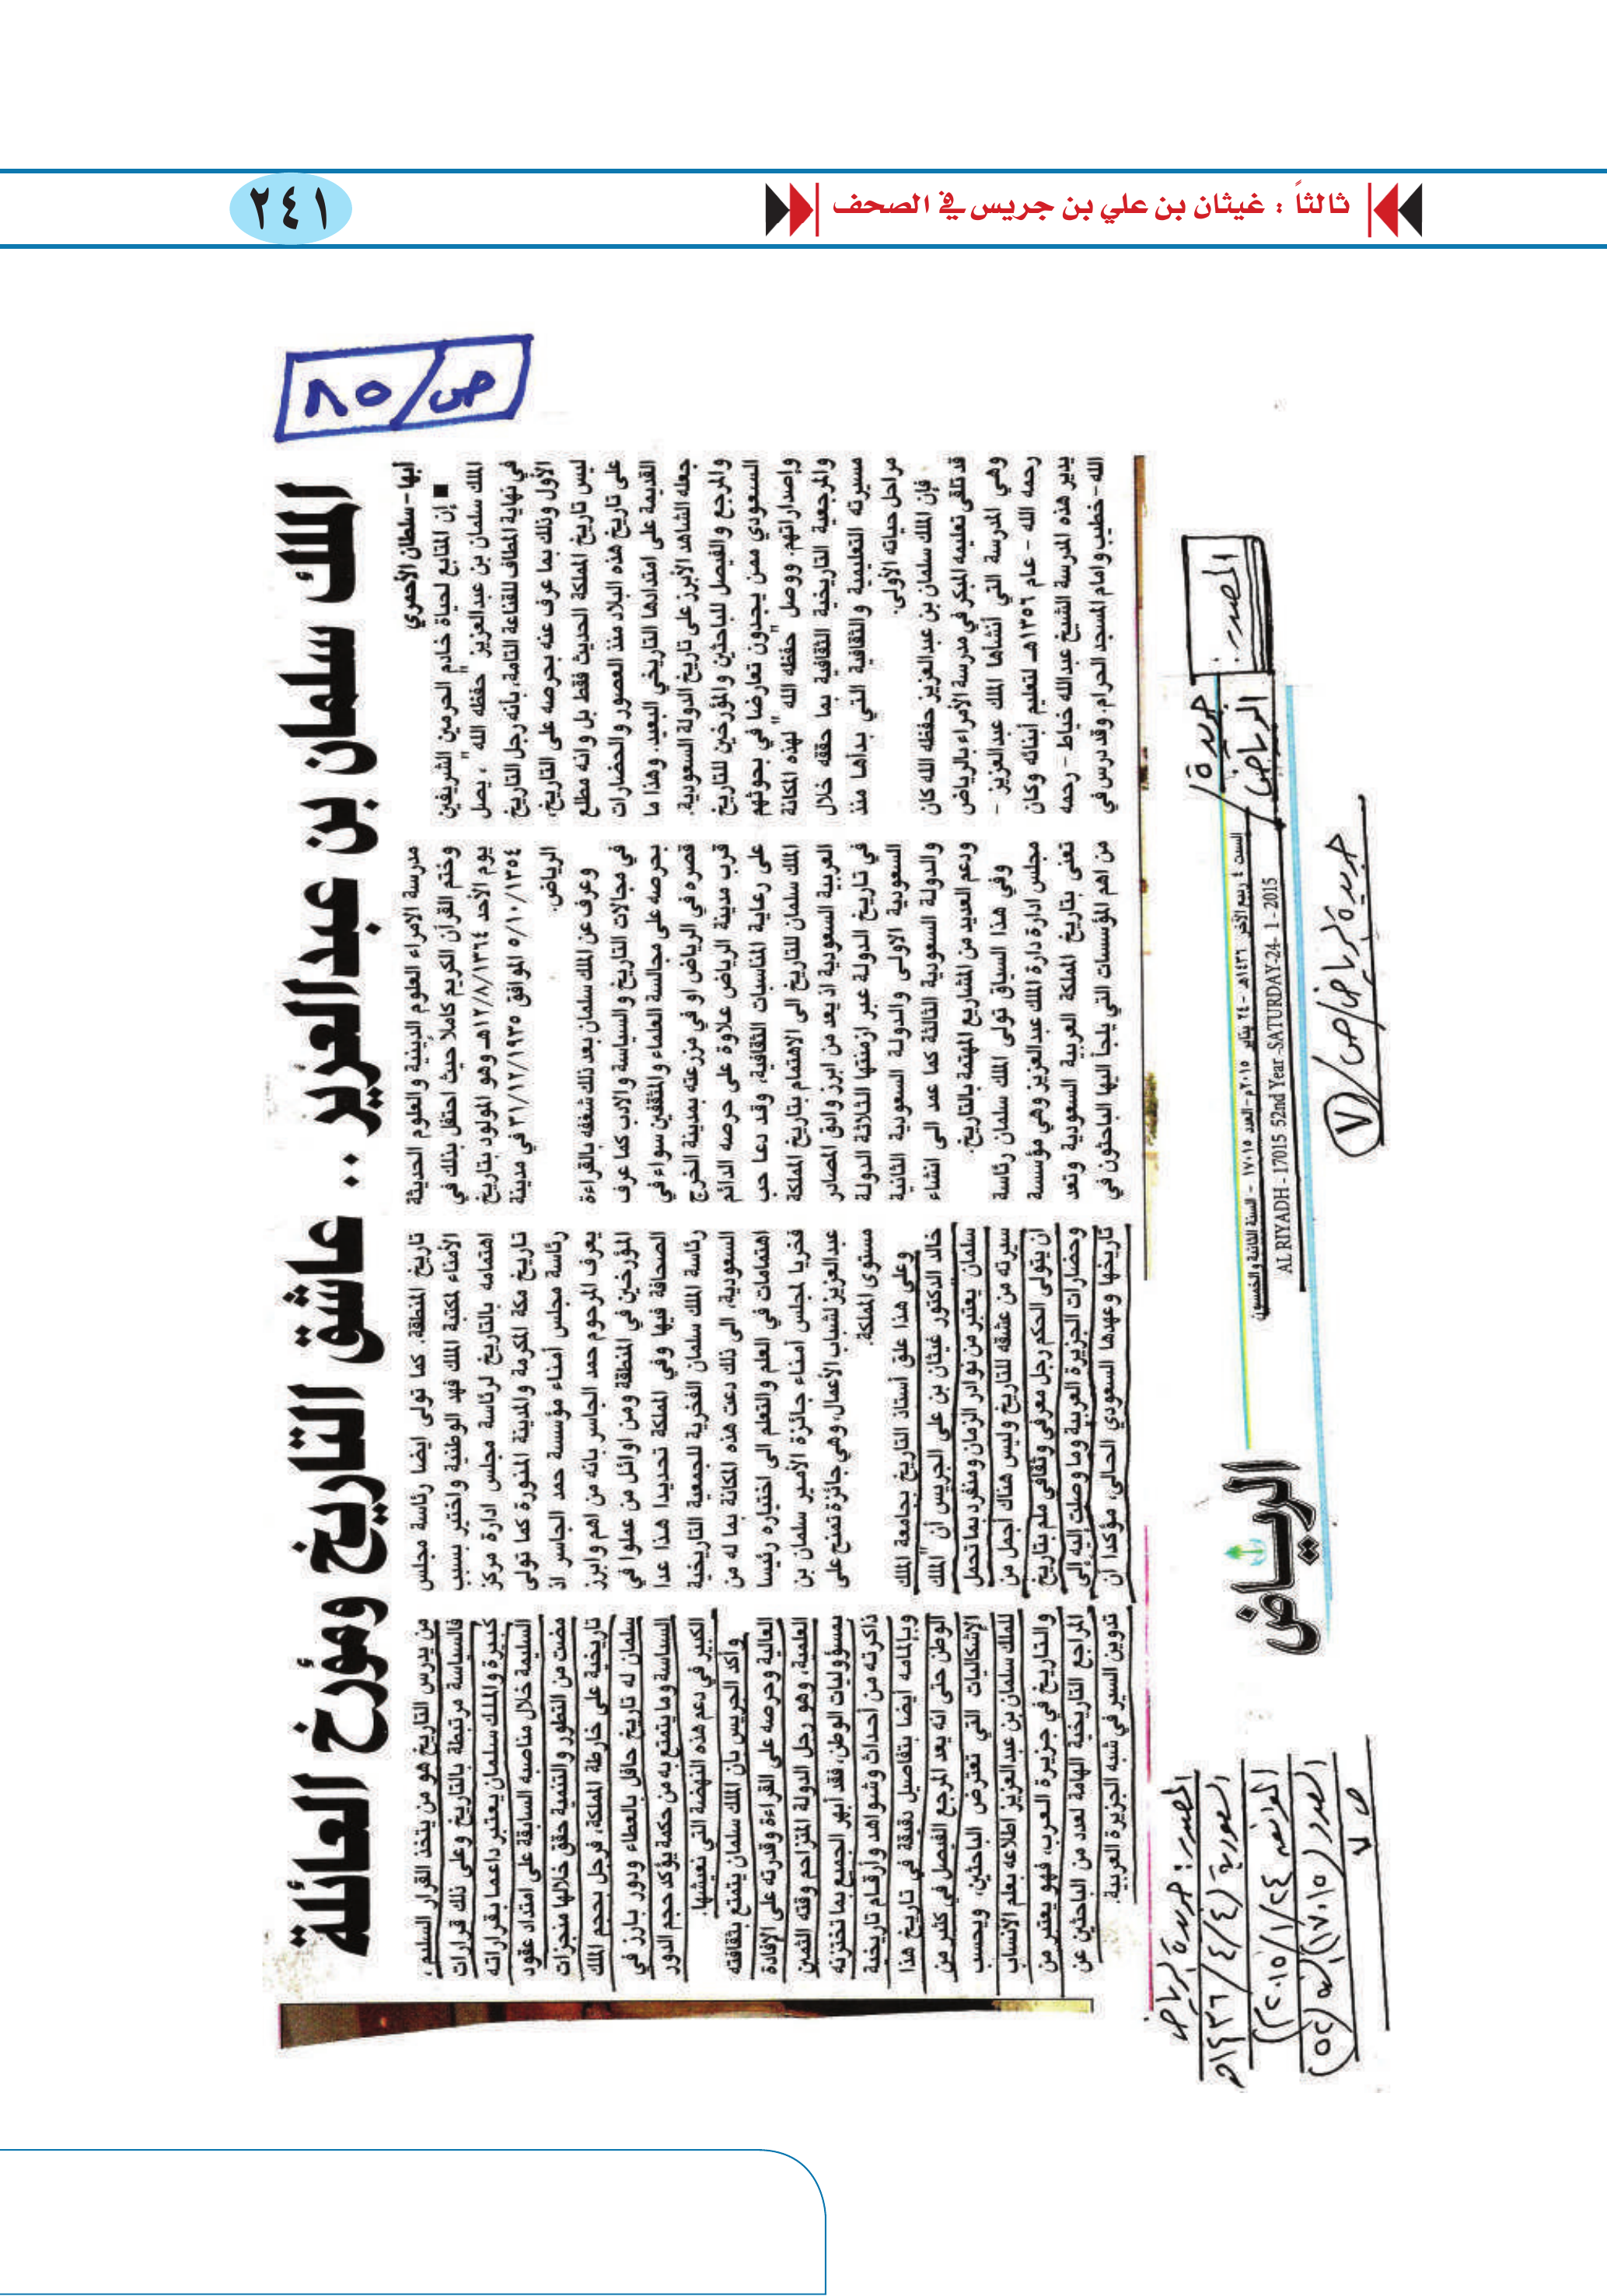 ثالثاً : غيثان بن علي بن جريس في الصحف
٢٤١
ص/٨٥
الملك سلمان بن عبدالعزيز .. عاشق التاريخ ومؤرخ العائلة
أبها - سلطان الأحمري
■ إن المتابع لحياة خادم الحرمين الشريفين
الملك سلمان بن عبدالعزيز "حفظه الله"، يصل
في نهاية المطاف للقناعة التامة، بأنه رجل التاريخ
الأول وذلك بما عرف عنه بحرصه على التاريخ،
ليس تاريخ المملكة الحديث فقط بل وانه مطلع
على تاريخ هذه البلاد منذ العصور والحضارات
القديمة على امتدادها التاريخي البعيد. وهذا ما
جعله الشاهد الأبرز على تاريخ الدولة السعودية.
والمرجع والفيصل للباحثين والمؤرخين للتاريخ
السعودي ممن يجدون تعارضا في بحوثهم
وإصداراتهم. ووصل "حفظه الله" لهذه المكانة
والمرجعية التاريخية الثقافية بما حققه خلال
مسيرته التعليمية والثقافية التي بدأها منذ
مراحل حياته الأولى.
فإن الملك سلمان بن عبدالعزيز حفظه الله كان
قد تلقى تعليمه المبكر في مدرسة الأمراء بالرياض
وهي المدرسة التي أنشأها الملك عبدالعزيز -
رحمه الله - عام ١٣٥٦هـ لتعليم أبنائه وكان
يدير هذه المدرسة الشيخ عبدالله خياط - رحمه
الله - خطيب وإمام المسجد الحرام. وقد درس في
مدرسة الامراء العلوم الدينية والعلوم الحديثة
وختم القرآن الكريم كاملا حيث احتفل بذلك في
يوم الأحد ١٢/٨/١٣٦٤هـ وهو المولود بتاريخ
٥/١٠/١٣٥٤ الموافق ٣١/١٢/١٩٣٥ في مدينة
الرياض.
وعرف عن الملك سلمان بعد ذلك شغفه بالقراءة
في مجالات التاريخ والسياسة والادب كما عرف
بحرصه على مجالسة العلماء والمثقفين سواء في
قصره في الرياض او في مزرعته بمدينة الخرج
قرب مدينة الرياض علاوة على حرصه الدائم
على رعاية المناسبات الثقافية، وقد دعا حب
الملك سلمان للتاريخ الى الاهتمام بتاريخ المملكة
العربية السعودية اذ يعد من ابرز وادق المصادر
في تاريخ الدولة عبر ازمنتها الثلاثة الدولة
السعودية الاولى والدولة السعودية الثانية
والدولة السعودية الثالثة كما عمد الى انشاء
ودعم العديد من المشاريع المهتمة بالتاريخ.
وفي هذا السياق تولى الملك سلمان رئاسة
مجلس ادارة دارة الملك عبدالعزيز وهي مؤسسة
تعنى بتاريخ المملكة العربية السعودية وتعد
من اهم المؤسسات التي يلجأ اليها الباحثون في
تاريخ المنطقة. كما تولى ايضا رئاسة مجلس
الأمناء لمكتبة الملك فهد الوطنية واختير بسبب
اهتمامه بالتاريخ لرئاسة مجلس ادارة مركز
تاريخ مكة المكرمة والمدينة المنورة كما تولى
رئاسة مجلس أمناء مؤسسة حمد الجاسر اذ
يعرف المرحوم حمد الجاسر بانه من اهم وابرز
المؤرخين في المنطقة ومن اوائل من عملوا في
الصحافة فيها وفي المملكة تحديدا هذا عدا
رئاسة الملك سلمان الفخرية للجمعية التاريخية
السعودية، الى ذلك دعت هذه المكانة بما له من
اهتمامات في العلم والتعلم الى اختياره رئيسا
فخريا لمجلس أمناء جائزة الأمير سلمان بن
عبدالعزيز لشباب الأعمال، وهي جائزة تمنح على
مستوى المملكة.
وعلى هذا علق أستاذ التاريخ بجامعة الملك
خالد الدكتور غيثان بن علي الجريس أن "الملك
سلمان" يعتبر من نوادر الزمان ومنفرد بما تحمل
سيرته من عشقه للتاريخ وليس هناك أجمل من
ان يتولى الحكم رجل معرفي وثقافي ملم بتاريخ
وحضارات الجزيرة العربية وما وصلت إليه إلى
تاريخها وعهدها السعودي الحالي، مؤكدا أن
من يدرس التاريخ هو من يتخذ القرار السليم،
فالسياسة مرتبطة بالتاريخ وعلى ذلك قرارات
كبيرة والملك سلمان يعتبر داعما بقراراته
السليمة خلال مناصبه السابقة على امتداد عقود
مضت من التطور والتنمية حقق خلالها منجزات
تاريخية على خارطة المملكة، فرجل بحجم الملك
سلمان له تاريخ حافل بالعطاء ودور بارز في
السياسة وما يتمتع به من حكمة يؤكد حجم الدور
الكبير في دعم هذه النهضة التي نعيشها.
وأكد الجريس بان الملك سلمان يتمتع بثقافته
العالية وحرصه على القراءة وقدرته على الإفادة
العلمية، وهو رجل الدولة المتزاحم وقته الثمين
بمسؤوليات الوطن، فقد أبهر الجميع بما تختزنه
ذاكرته من أحداث وشواهد وأرقام تاريخية
وبإلمامه أيضا بتفاصيل دقيقة في تاريخ هذا
الوطن حتى انه يعد المرجع الفيصل في كثير من
الإشكاليات التي تعترض الباحثين، ويحسب
للملك سلمان بن عبدالعزيز اطلاعه بعلم الأنساب
والتاريخ في جزيرة العرب، فهو يعتبر من
المراجع التاريخية الهامة لعدد من الباحثين عن
تدوين السير في شبه الجزيرة العربية.
المصدر:
جريدة/
الرياض/
السبت ٤ ربيع الآخر ١٤٣٦هـ - ٢٤ يناير ٢٠١٥م - العدد ١٧٠١٥ - السنة الثانية والخمسون
AL RIYADH - 17015 52nd Year -SATURDAY-24- 1 - 2015
جريدة الرياض/ص/٧
الرياض
المصدر: جريدة الرياض
السعودية (٤/٤/١٤٣٦هـ
الموافق ٢٤/١/٢٠١٥)
العدد (١٧٠١٥) السنة (٥٢)
ص ٧